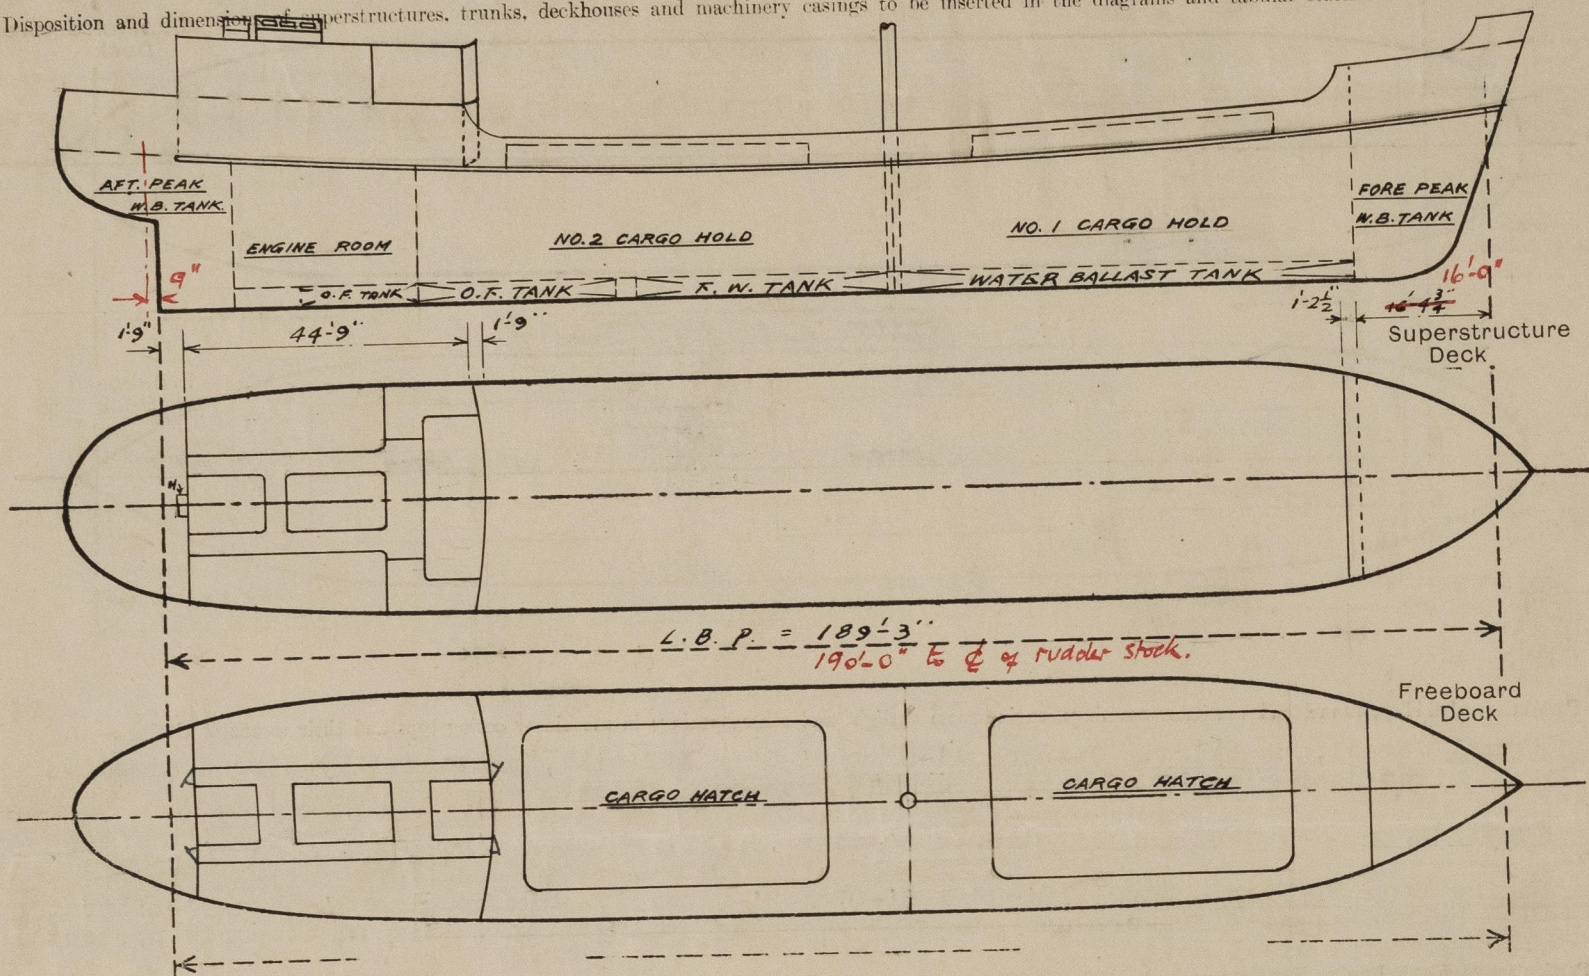 Disposition and dimensions of superstructures, trunks, deckhouses and machinery casings to be inserted in the diagrams and
AFT. PEAK
W.B. TANK.
ENGINE ROOM
NO.2 CARGO HOLD
NO. 1 CARGO HOLD
FORE PEAK
W.B. TANK
9"
O.F. TANK
O.F. TANK
F. W. TANK
WATER BALLAST TANK
16'-0"
1'-9"
44'-9"
1'-9"
1'-2½"
16'-4¾"
Superstructure
Deck
L. B. P. = 189'-3"
190'-0" to ℄ of rudder stock.
Freeboard
Deck
CARGO HATCH
CARGO HATCH